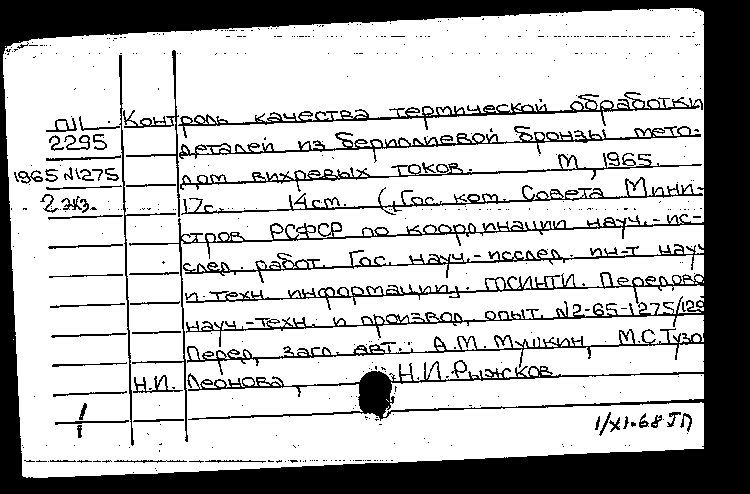 П/1 Контроль качества термической обработки
2295 деталей из бериллиевой бронзы мето-
1965 №1275 дом вихревых токов. М, 1965.
2 экз. 17с. 14см. (Гос. ком. Совета Мини-
стров РСФСР по координации науч.-ис-
след. работ. Гос. науч.-исслед. ин-т науч
и техн. информации. ГОСИНТИ. Передово
науч.-техн. и производ. опыт. №2-65-1275/129
Перед. загл. авт.: А.М. Мушкин, М.С. Тузо
Н.И. Леонова, Н.И. Рыжсков
1/XI-68 ЛП